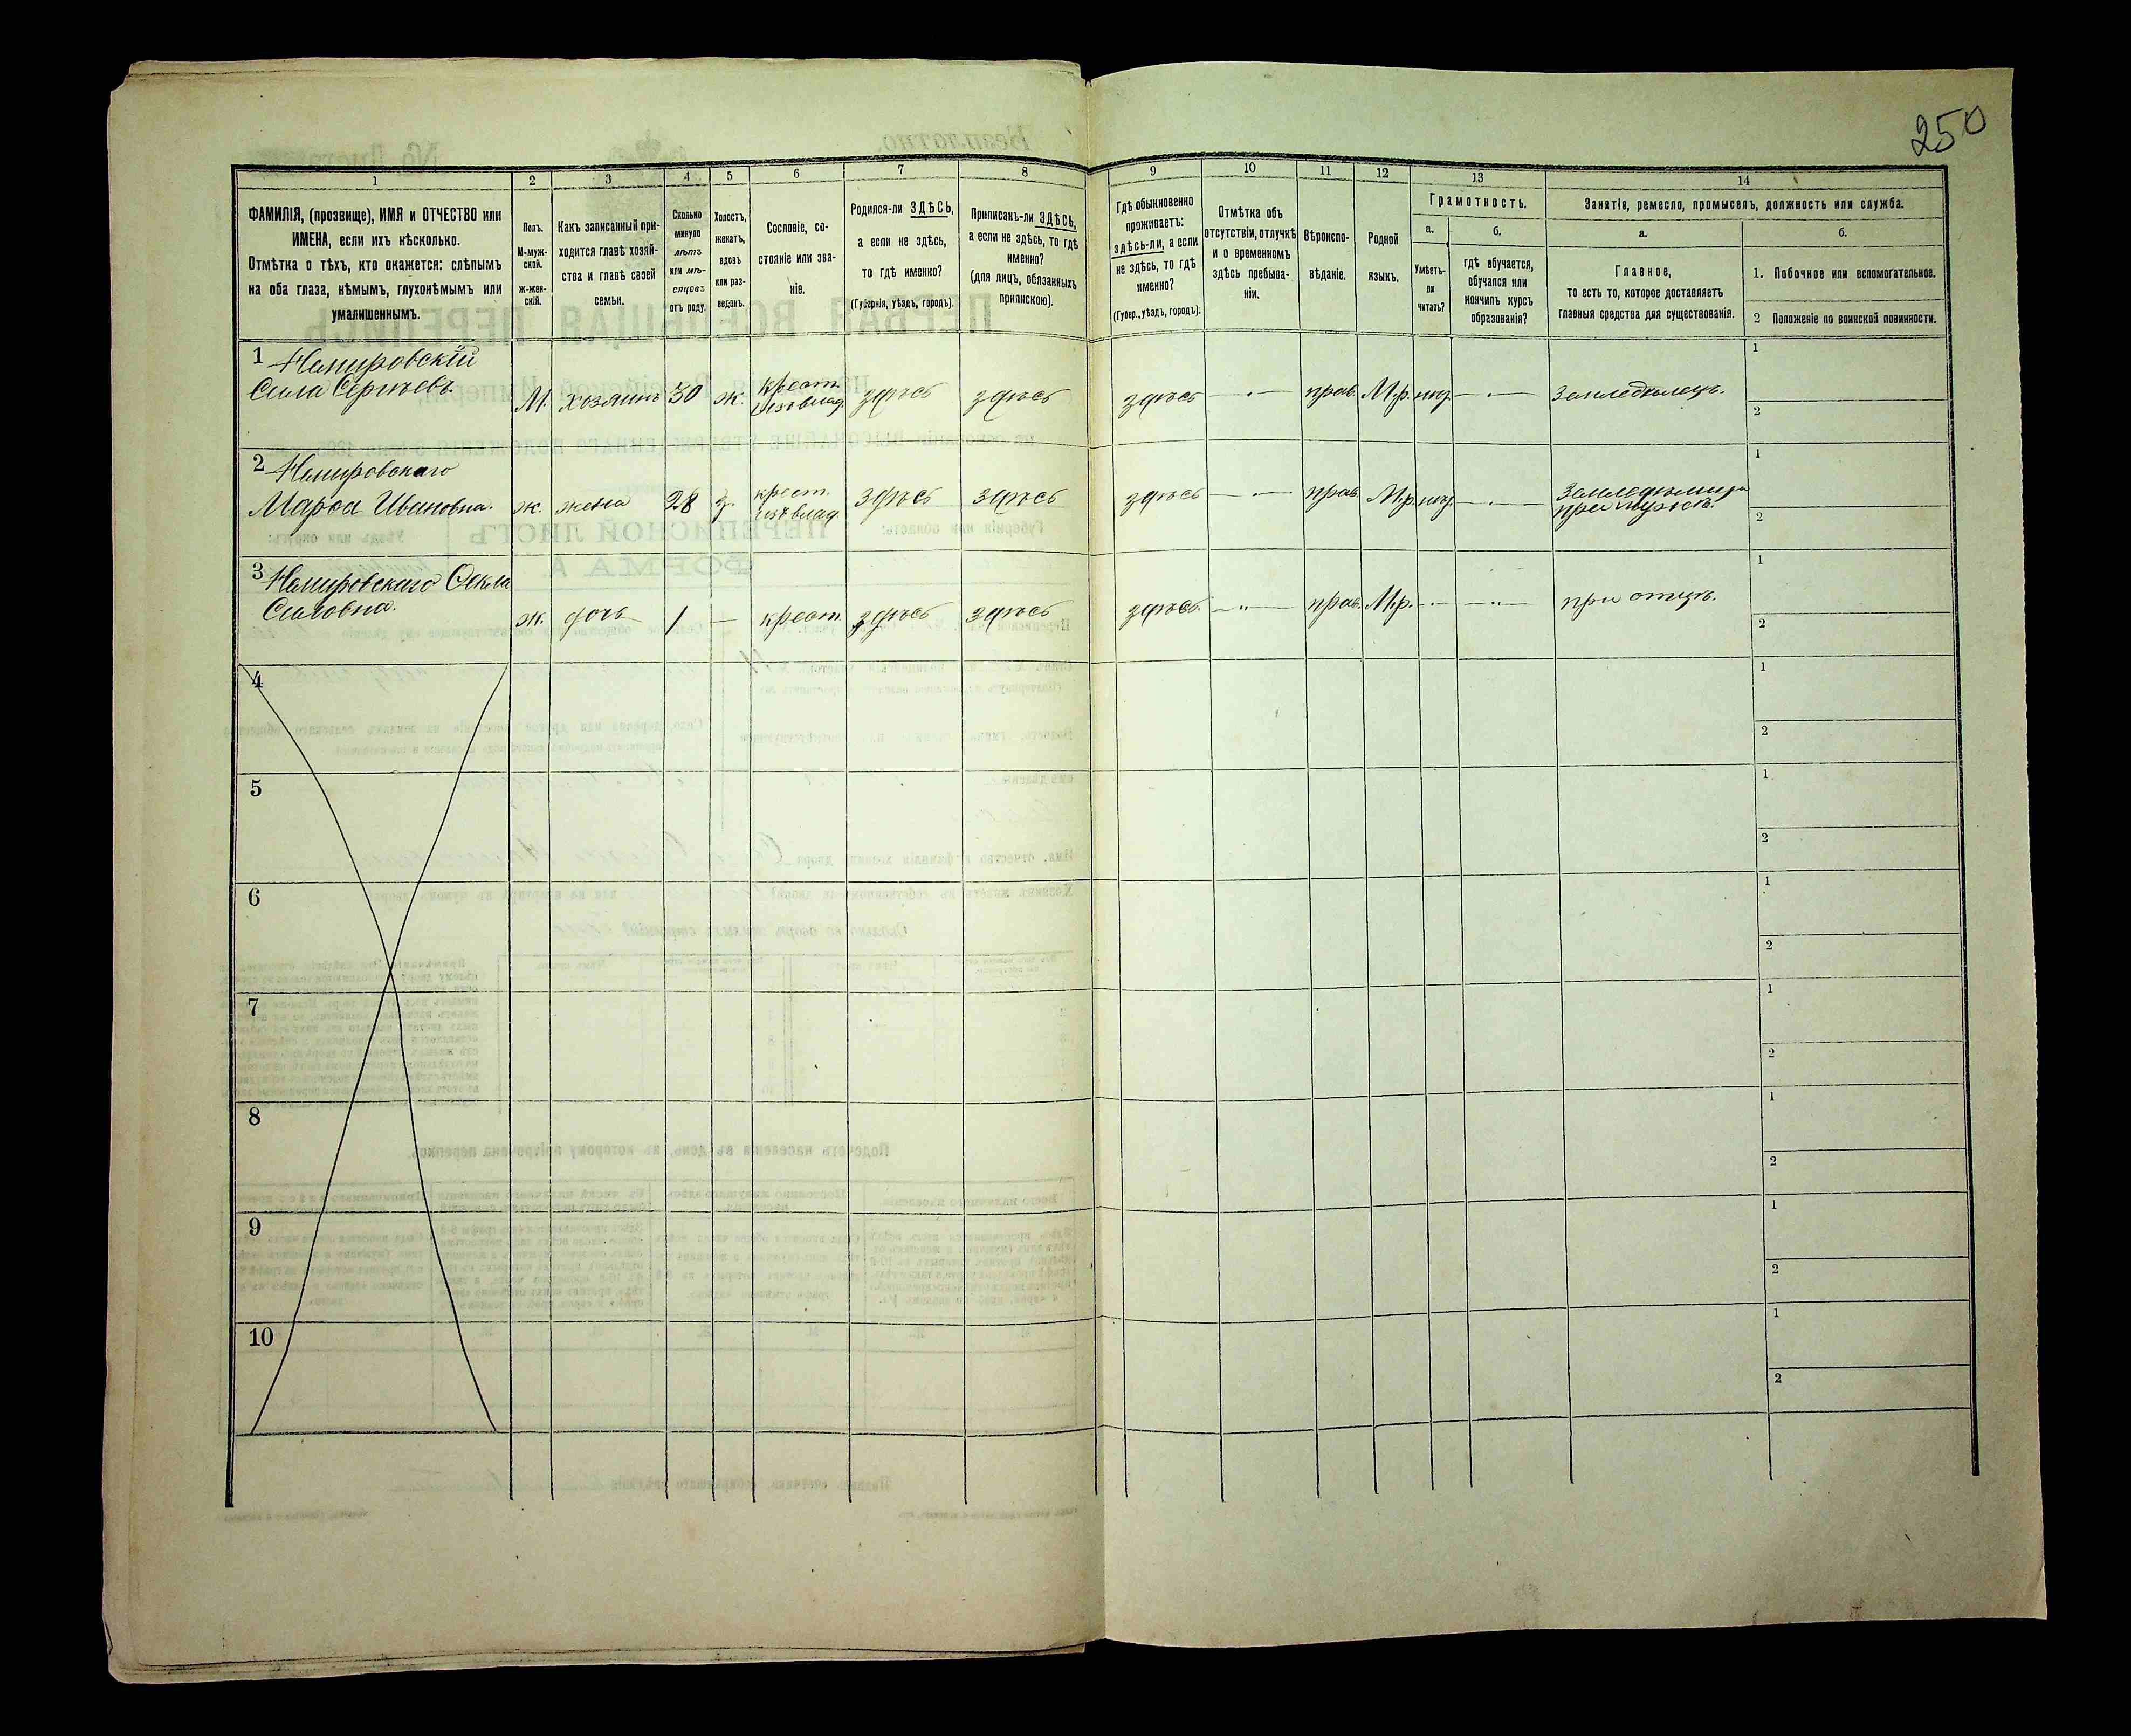 250
1
2
3
4
5
6
7
8
9
10
11
12
13
14
ФАМИЛІЯ, (прозвище), ИМЯ и ОТЧЕСТВО или
ИМЕНА, если ихъ нѣсколько.
Отмѣтка о тѣхъ, кто окажется: слѣпымъ
на оба глаза, нѣмымъ, глухонѣмымъ или
умалишеннымъ.
Полъ.
М-муж-
ской.
ж-жен-
скій.
Какъ записанный при-
ходится главѣ хозяй-
ства и главѣ своей
семьи.
Сколько
минуло
лѣтъ
или мѣ-
сяцевъ
отъ роду.
Холостъ,
женатъ,
вдовъ
или раз-
веденъ.
Сословіе, со-
стояніе или зва-
ніе.
Родился-ли ЗДѢСЬ,
а если не здѣсь,
то гдѣ именно?
(Губернія, уѣздъ, городъ).
Приписанъ-ли ЗДѢСЬ,
а если не здѣсь, то гдѣ
именно?
(для лицъ, обязанныхъ
припискою).
Гдѣ обыкновенно
проживаетъ:
здѣсь-ли, а если
не здѣсь, то гдѣ
именно?
(Губер., уѣздъ, городъ).
Отмѣтка объ
отсутствіи, отлучкѣ
и о временномъ
здѣсь пребыва-
ніи.
Вѣроиспо-
вѣданіе.
Родной
языкъ.
Грамотность.
а.
Умѣетъ-
ли
читать?
б.
гдѣ обучается,
обучался или
кончилъ курсъ
образованія?
Занятія, ремесло, промыселъ, должность или служба.
а.
Главное,
то есть то, которое доставляетъ
главныя средства для существованія.
б.
1. Побочное или вспомогательное.
2 Положеніе по воинской повинности.
1 Немировскій
Сила Сергѣевъ.
М. хозяинъ 30 ж. крест. здѣсь здѣсь здѣсь прав. М.р. нѣт. Земледѣлецъ.
1
2
2 Немировскаго
Марѳа Ивановна. ж. жена 28 з. крест. здѣсь здѣсь здѣсь прав. М.р. нѣт.
при мужѣ.
1
2
3 Немировскаго Ѳекла
Силовна. ж. дочь 1 — крест. здѣсь здѣсь здѣсь. прав. М.р. при отцѣ.
1
2
4
1
2
5
1
2
6
1
2
7
1
2
8
1
2
9
1
2
10
1
2